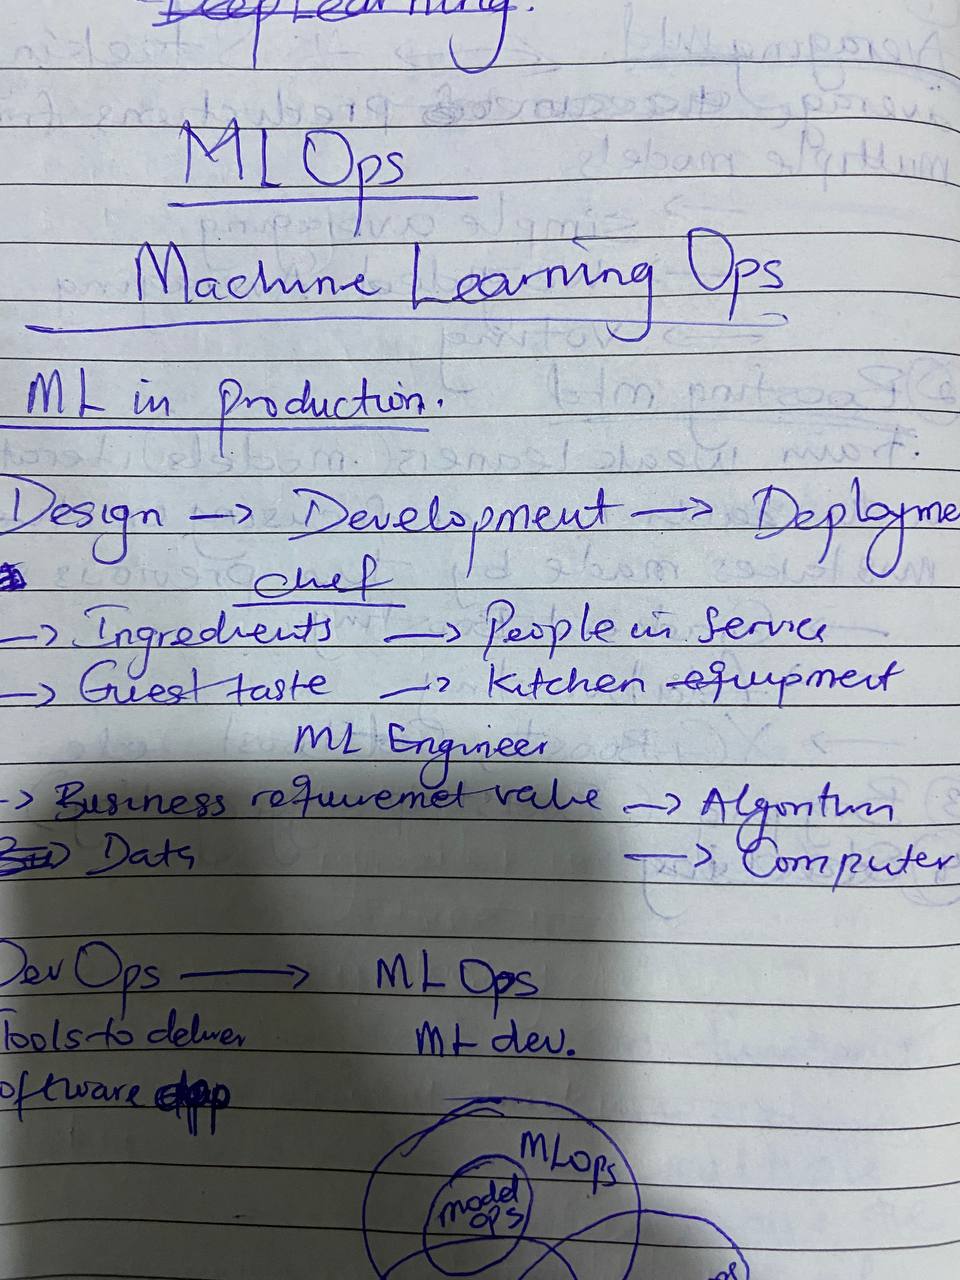 Deep Learning.
MLOps
Machine Learning Ops
ML in production.
Design → Development → Deployme
chef
→ Ingredients → People in Service
→ Guest taste → Kitchen equipment
ML Engineer
→ Business requiremet value → Algorithm
→ Data → Computer
DevOps → MLOps
Tools to deliver ML dev.
oftware app
MLOps
model
ops